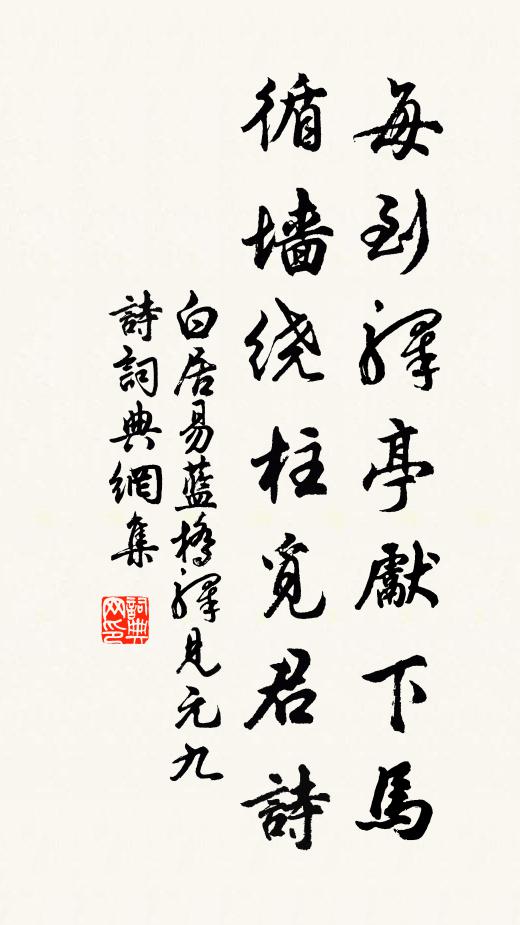 每到驛亭獻下馬
循墙绕柱覓君詩
白居易藍橋驛見元九
詩詞典網集
詞典
网印